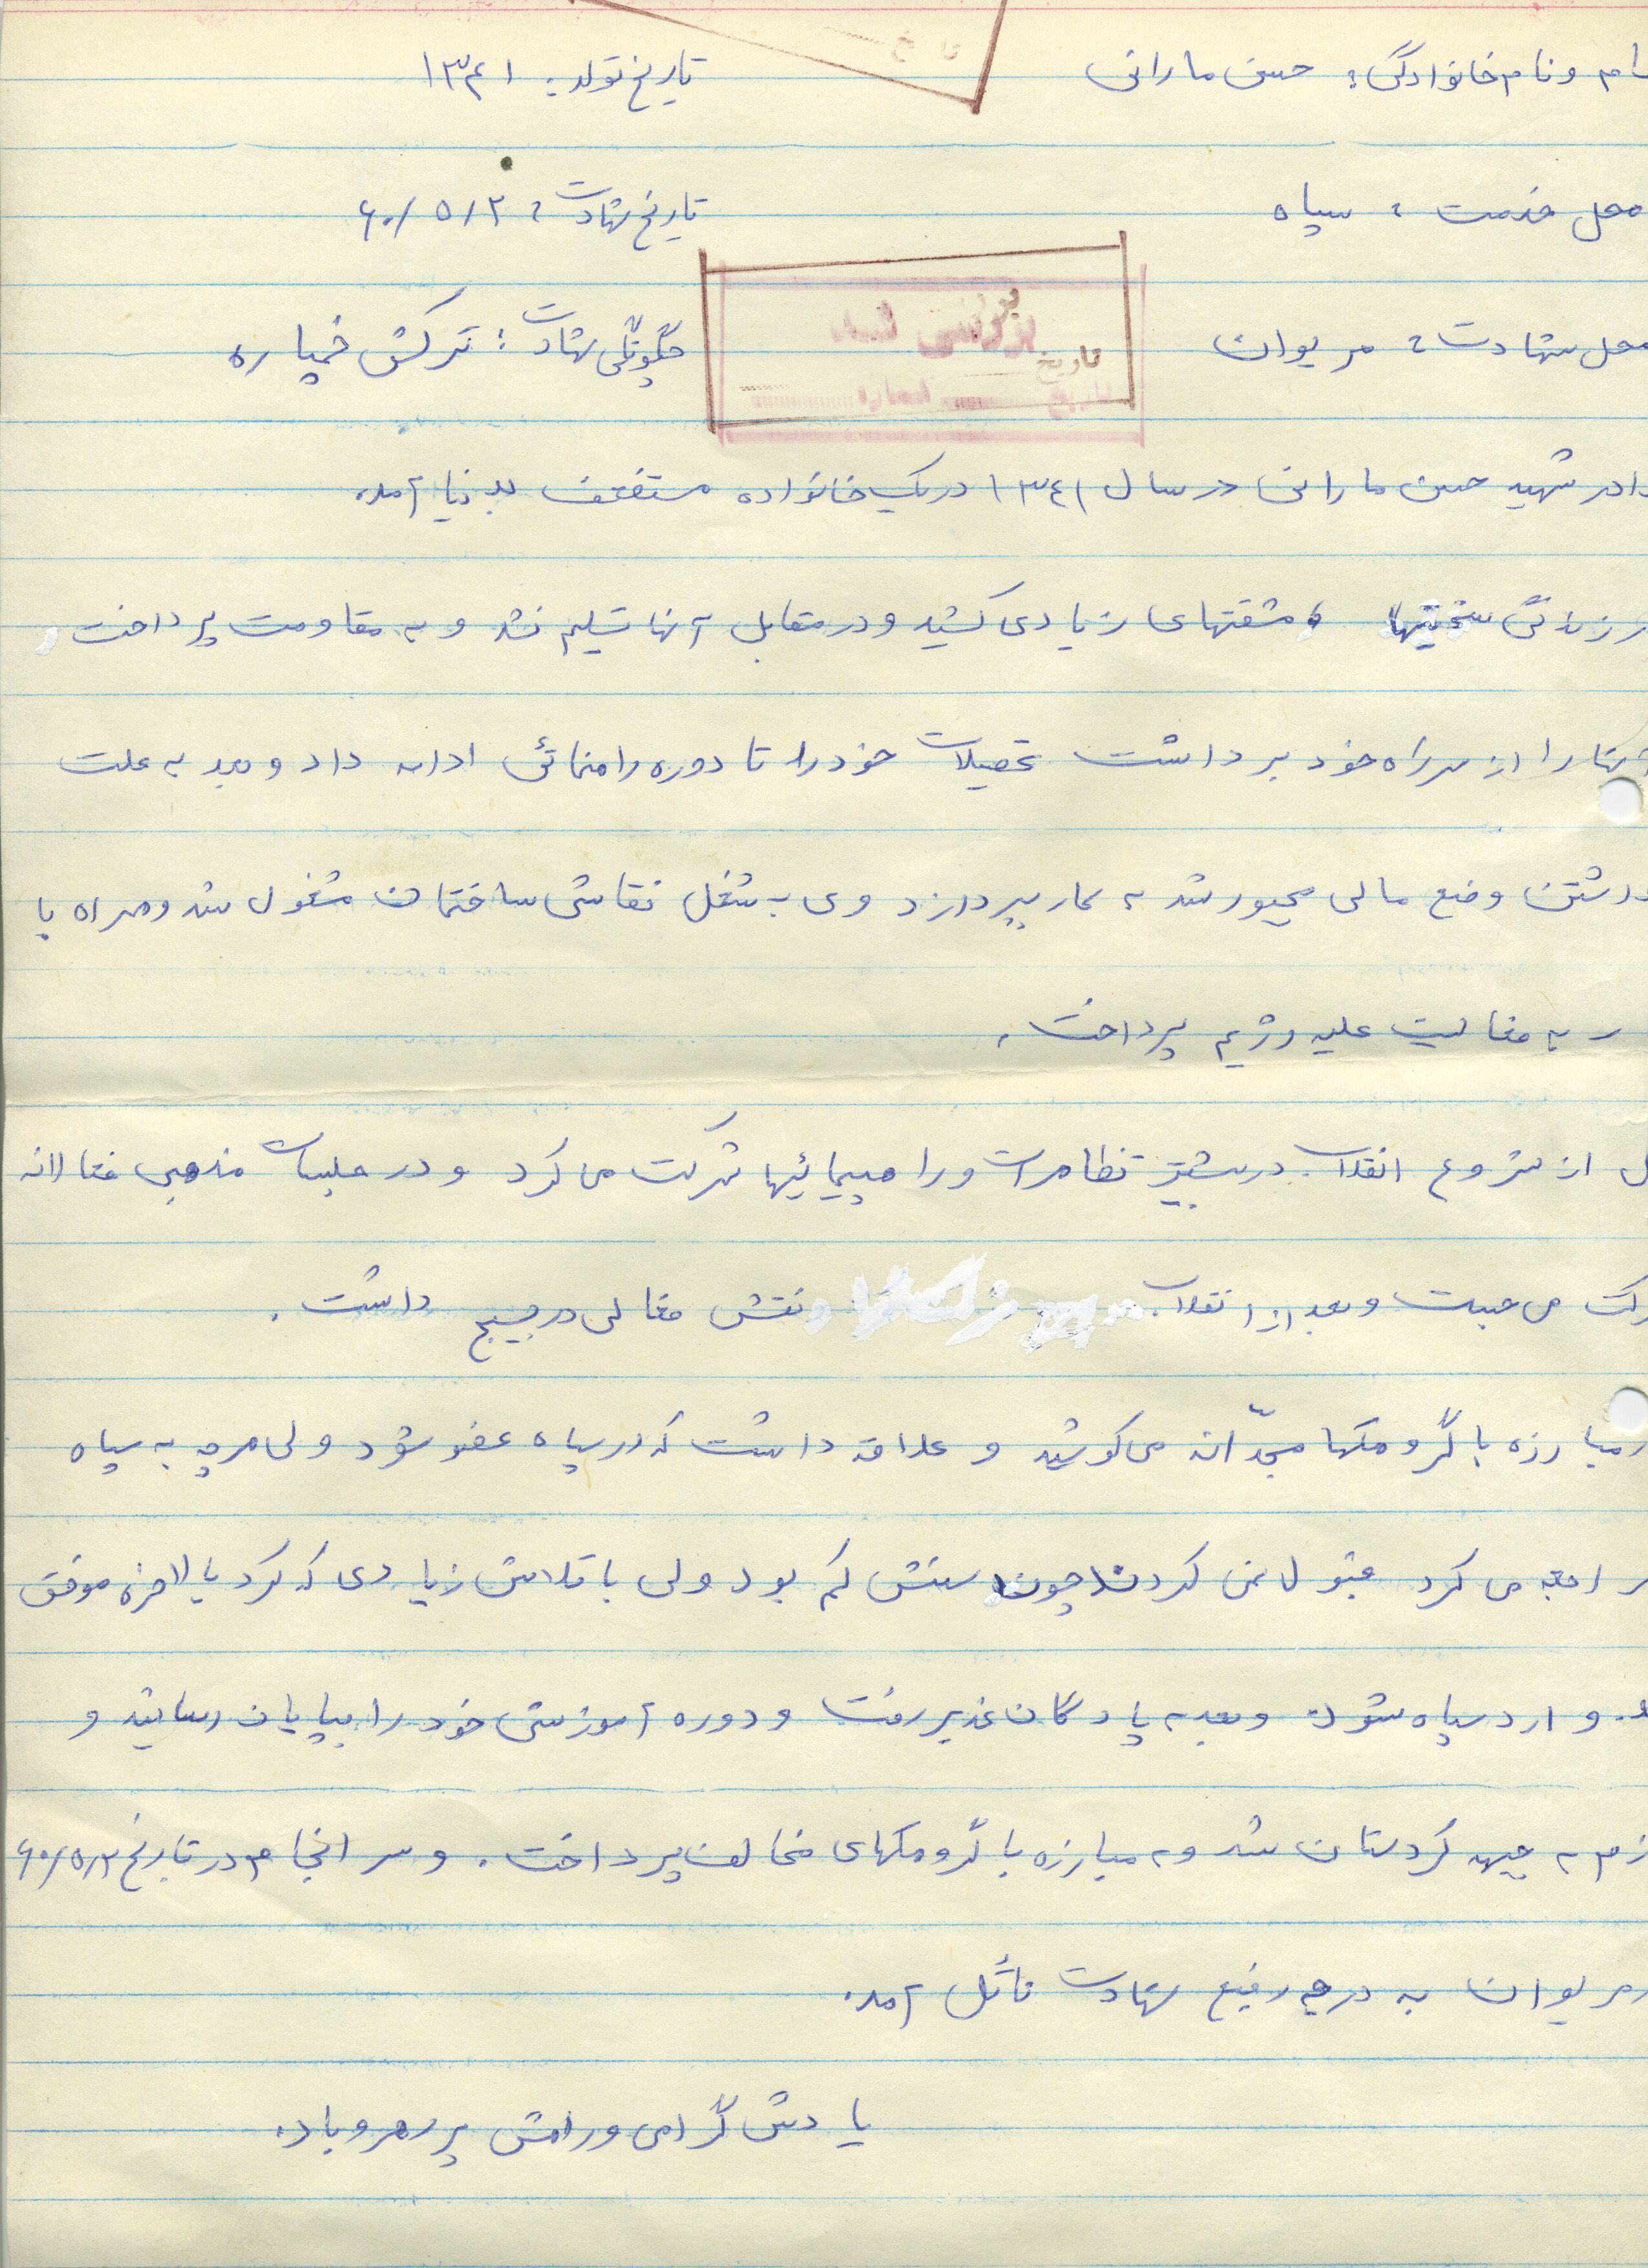 نام و نام خانوادگی: حسن مارانی تاریخ تولد: ۱۳۴۱
محل خدمت: سپاه تاریخ شهادت: ۶۰/۵/۲
محل شهادت: مریوان چگونگی شهادت: ترکش خمپاره
تاریخ
برادر شهید حسن مارانی در سال ۱۳٤۱ در یک خانواده مستضعف بدنیا آمد.
در زندگی سختیها و مشقتهای زیادی کشید و در مقابل آنها تسلیم نشد و به مقاومت پرداخت و
آنها را از سر راه خود برداشت تحصیلات خود را تا دوره راهنمائی ادامه داد و بعد به علت
نداشتن وضع مالی مجبور شد به کار بپردازد وی به شغل نقاشی ساختمان مشغول شد و همراه با
به فعالیت علیه رژیم پرداخت.
از شروع انقلاب در بیشتر تظاهرات و راهپیمائیها شرکت می کرد و در جلسات مذهبی فعالانه
شرکت می جست و بعد از انقلاب و نقش فعالی در بسیج داشت.
در مبارزه با گروهکها مجدّانه می کوشید و علاقه داشت که در سپاه عضو شود ولی هر چه به سپاه
مراجعه می کرد قبول نمی کردند چون سنش کم بود ولی با تلاش زیادی که کرد بالاخره موفق
شد. وارد سپاه شود. و بعد به پادگان غدیر رفت و دوره آموزشی خود را بپایان رسانید و
عازم به جبهه کردستان شد و به مبارزه با گروهکهای مخالف پرداخت. و سرانجام در تاریخ ۶۰/۵/۲
در مریوان به درجه رفیع شهادت نائل آمد.
یادش گرامی و راهش پر رهرو باد.